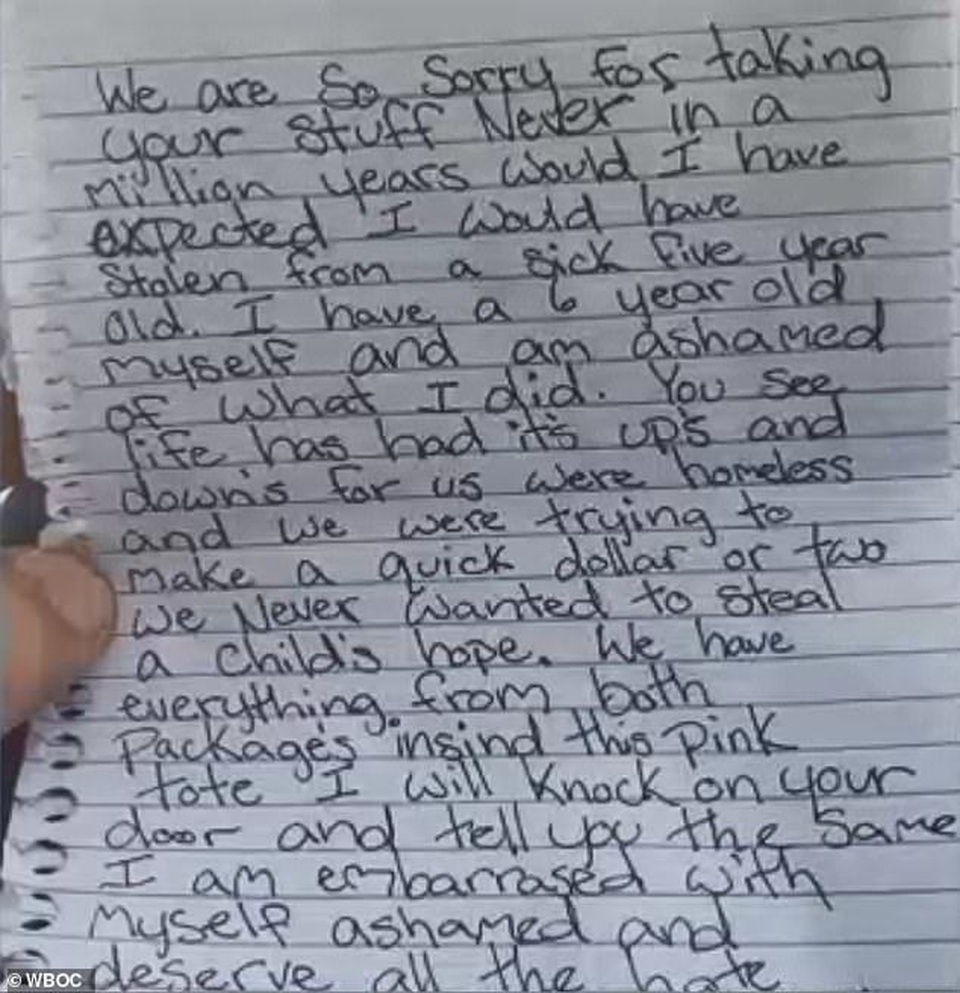 We are So Sorry for taking
your stuff Never in a
Million years would I have
expected I would have
Stolen from a sick five year
old. I have a 6 year old
myself and am ashamed
of what I did. You see
life has had it's up's and
down's for us were homeless
and we were trying to
make a quick dollar or two
we Never wanted to steal
a child's hope. We have
everything from both
Package's insind this pink
tote I will knock on your
door and tell you the same
I am embarrased with
Myself ashamed and
deserve all the hate
© WBOC